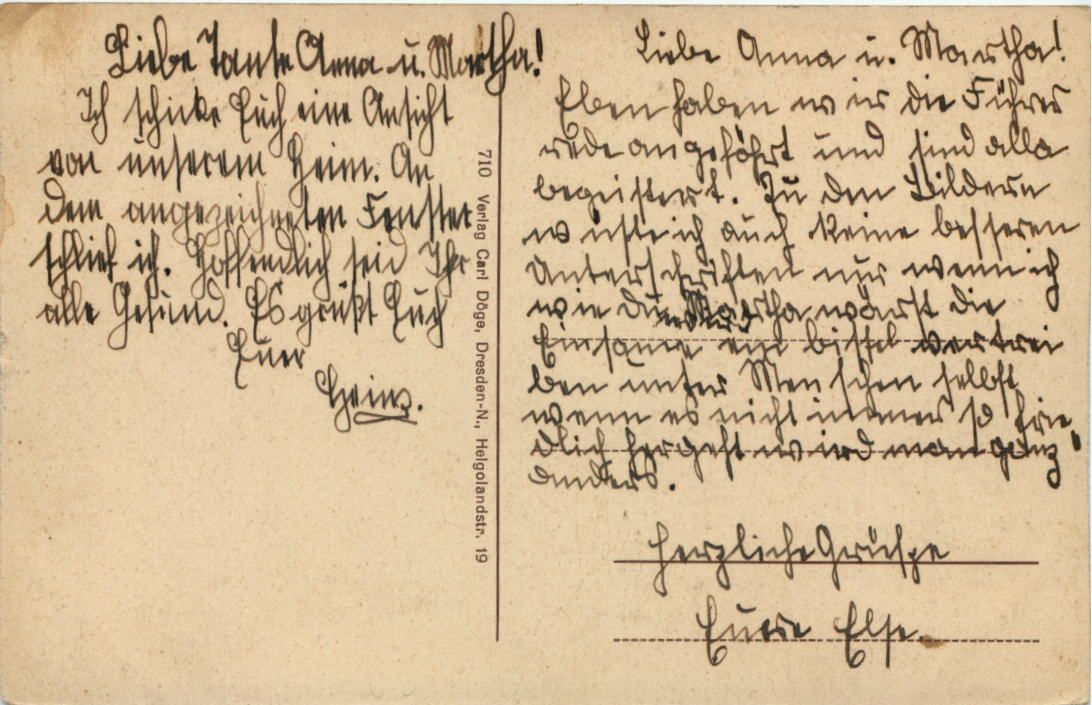 Liebe Tante Anna u. Martha!
Ich schicke Euch eine Ansicht
von unserem Heim. An
dem angezeichneten Fenster
schlief ich. Hoffendlich seid Ihr
alle Gesund. Es grüßt Euch
Euer
Heinz.
710 Verlag Carl Döge, Dresden-N., Helgolandstr. 19
Liebe Anna u. Martha!
Eben haben wir die Führer
rede angehöhrt und sind alle
begeistert. Zu den Bildern
wüste ich auch keine besseren
Unterschriften nur wenn ich
wie du Martha wärst die
Einsame ein bissel vertrei
ben unter Menschen selbst
wenn es nicht immer so frie
dlich hergeht wird man ganz
anders.
Herzliche Grüße
Eure Else.